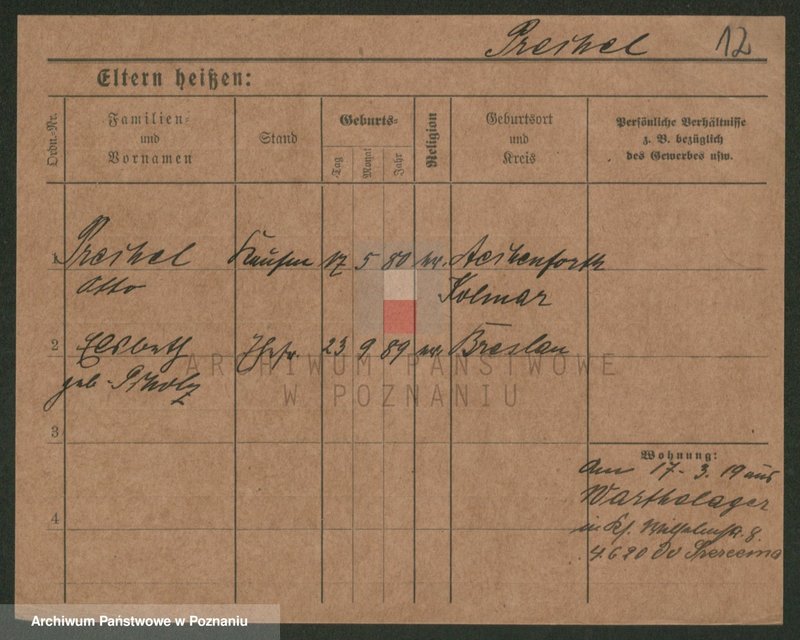 Preihel 12
Eltern heißen:
Ordn.-Nr.
Familien-
und
Vornamen
Stand
Geburts-
Tag
Monat
Jahr
Religion
Geburtsort
und
Kreis
Persönliche Verhältnisse
z. B. bezüglich
des Gewerbes usw.
1 Preihel Kaufm 17 5 80
Otto Kolmar
2 Elsbeth Ehefr. 23 9 89 Breslau
geb.
3
4
Wohnung:
am 17. 3. 19 aus
Warthelager
in
4.6.20
ARCHIWUM PAŃSTWOWE
W POZNANIU
Archiwum Państwowe w Poznaniu